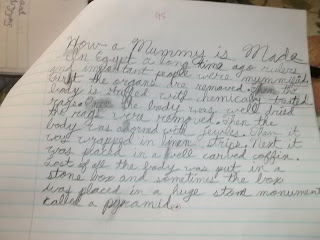 95
How a Mummy is Made
In Egypt a long time ago rulers
and important people were mummified.
First the organs are removed. Then the
body is stuffed w/ chemically treated
rags. Once the body was well dried
the rags were removed. Then the
body was adorned with jewles. Then it
was wrapped in linen strips. Next it
was placed in a well carved coffin.
Last of all the body was put in a
stone box and sometimes the box
was placed in a huge stone monument
called a pyramid.